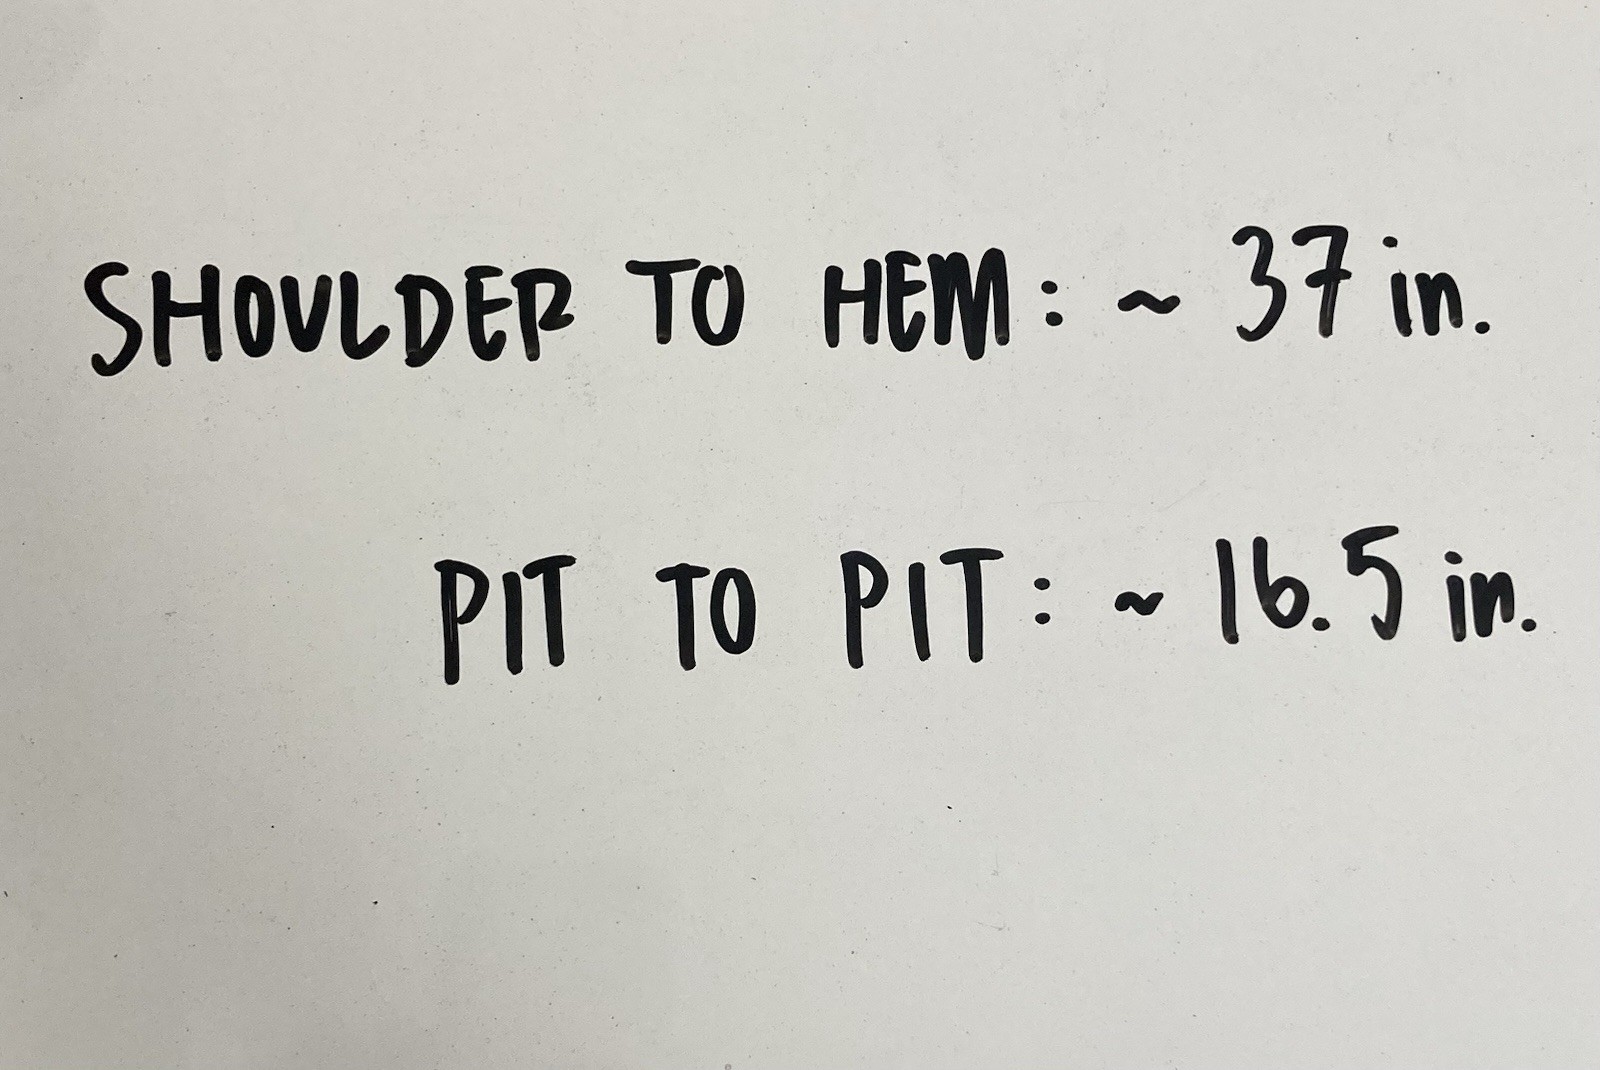 SHOULDER TO HEM: ~ 37 in.
PIT TO PIT: ~ 16.5 in.